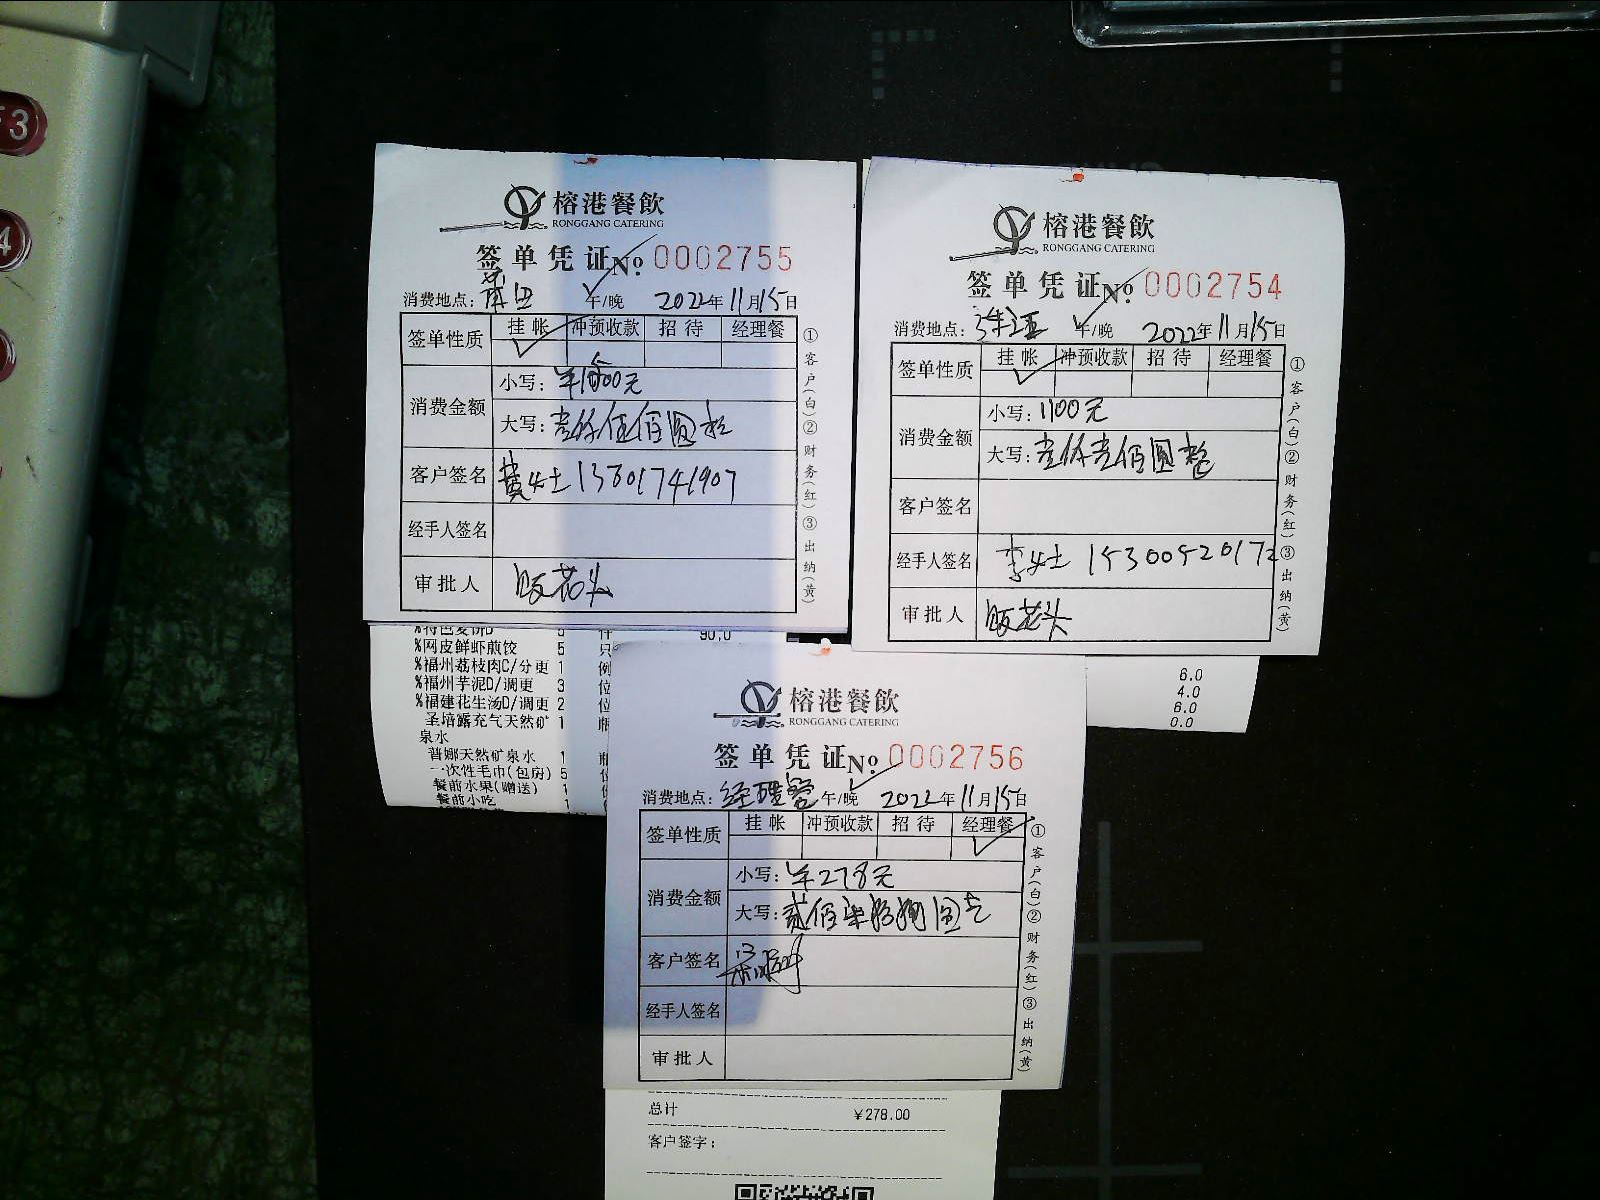 3
4
榕港餐飲
RONGGANG CATERING
签单凭证 No. 0002755
消费地点: 莆田 午/晚 2022年11月15日
签单性质 挂帐 冲预收款 招待 经理餐
消费金额 小写:
大写: 壹仟伍佰圆整
客户签名 黄女士 13801741907
经手人签名
审批人
①客户(白)②财务(红)③出纳(黄)
榕港餐飲
RONGGANG CATERING
签单凭证 No. 0002754
消费地点: 午/晚 2022年11月15日
签单性质 挂帐 冲预收款 招待 经理餐
消费金额 小写: 1100元
大写: 壹仟壹佰圆整
客户签名
经手人签名 李女士 15300520172
审批人
①客户(白)②财务(红)③出纳(黄)
%特色麦饼D 5 件 90.0
%网皮鲜虾煎饺 5 只
%福州荔枝肉C/分更 1 例
%福州芋泥D/调更 3 位
%福建花生汤D/调更 2 位
圣培露充气天然矿 1 瓶
泉水
普娜天然矿泉水 1 瓶
一次性毛巾(包房) 5 位
餐前水果(赠送) 1
餐前小吃 1
6.0
4.0
6.0
0.0
榕港餐飲
RONGGANG CATERING
签单凭证 No. 0002756
消费地点: 经理餐 午/晚 2022年11月15日
签单性质 挂帐 冲预收款 招待 经理餐
消费金额 小写: ¥278元
大写: 贰佰柒拾捌圆整
客户签名
经手人签名
审批人
①客户(白)②财务(红)③出纳(黄)
总计 ¥278.00
客户签字: